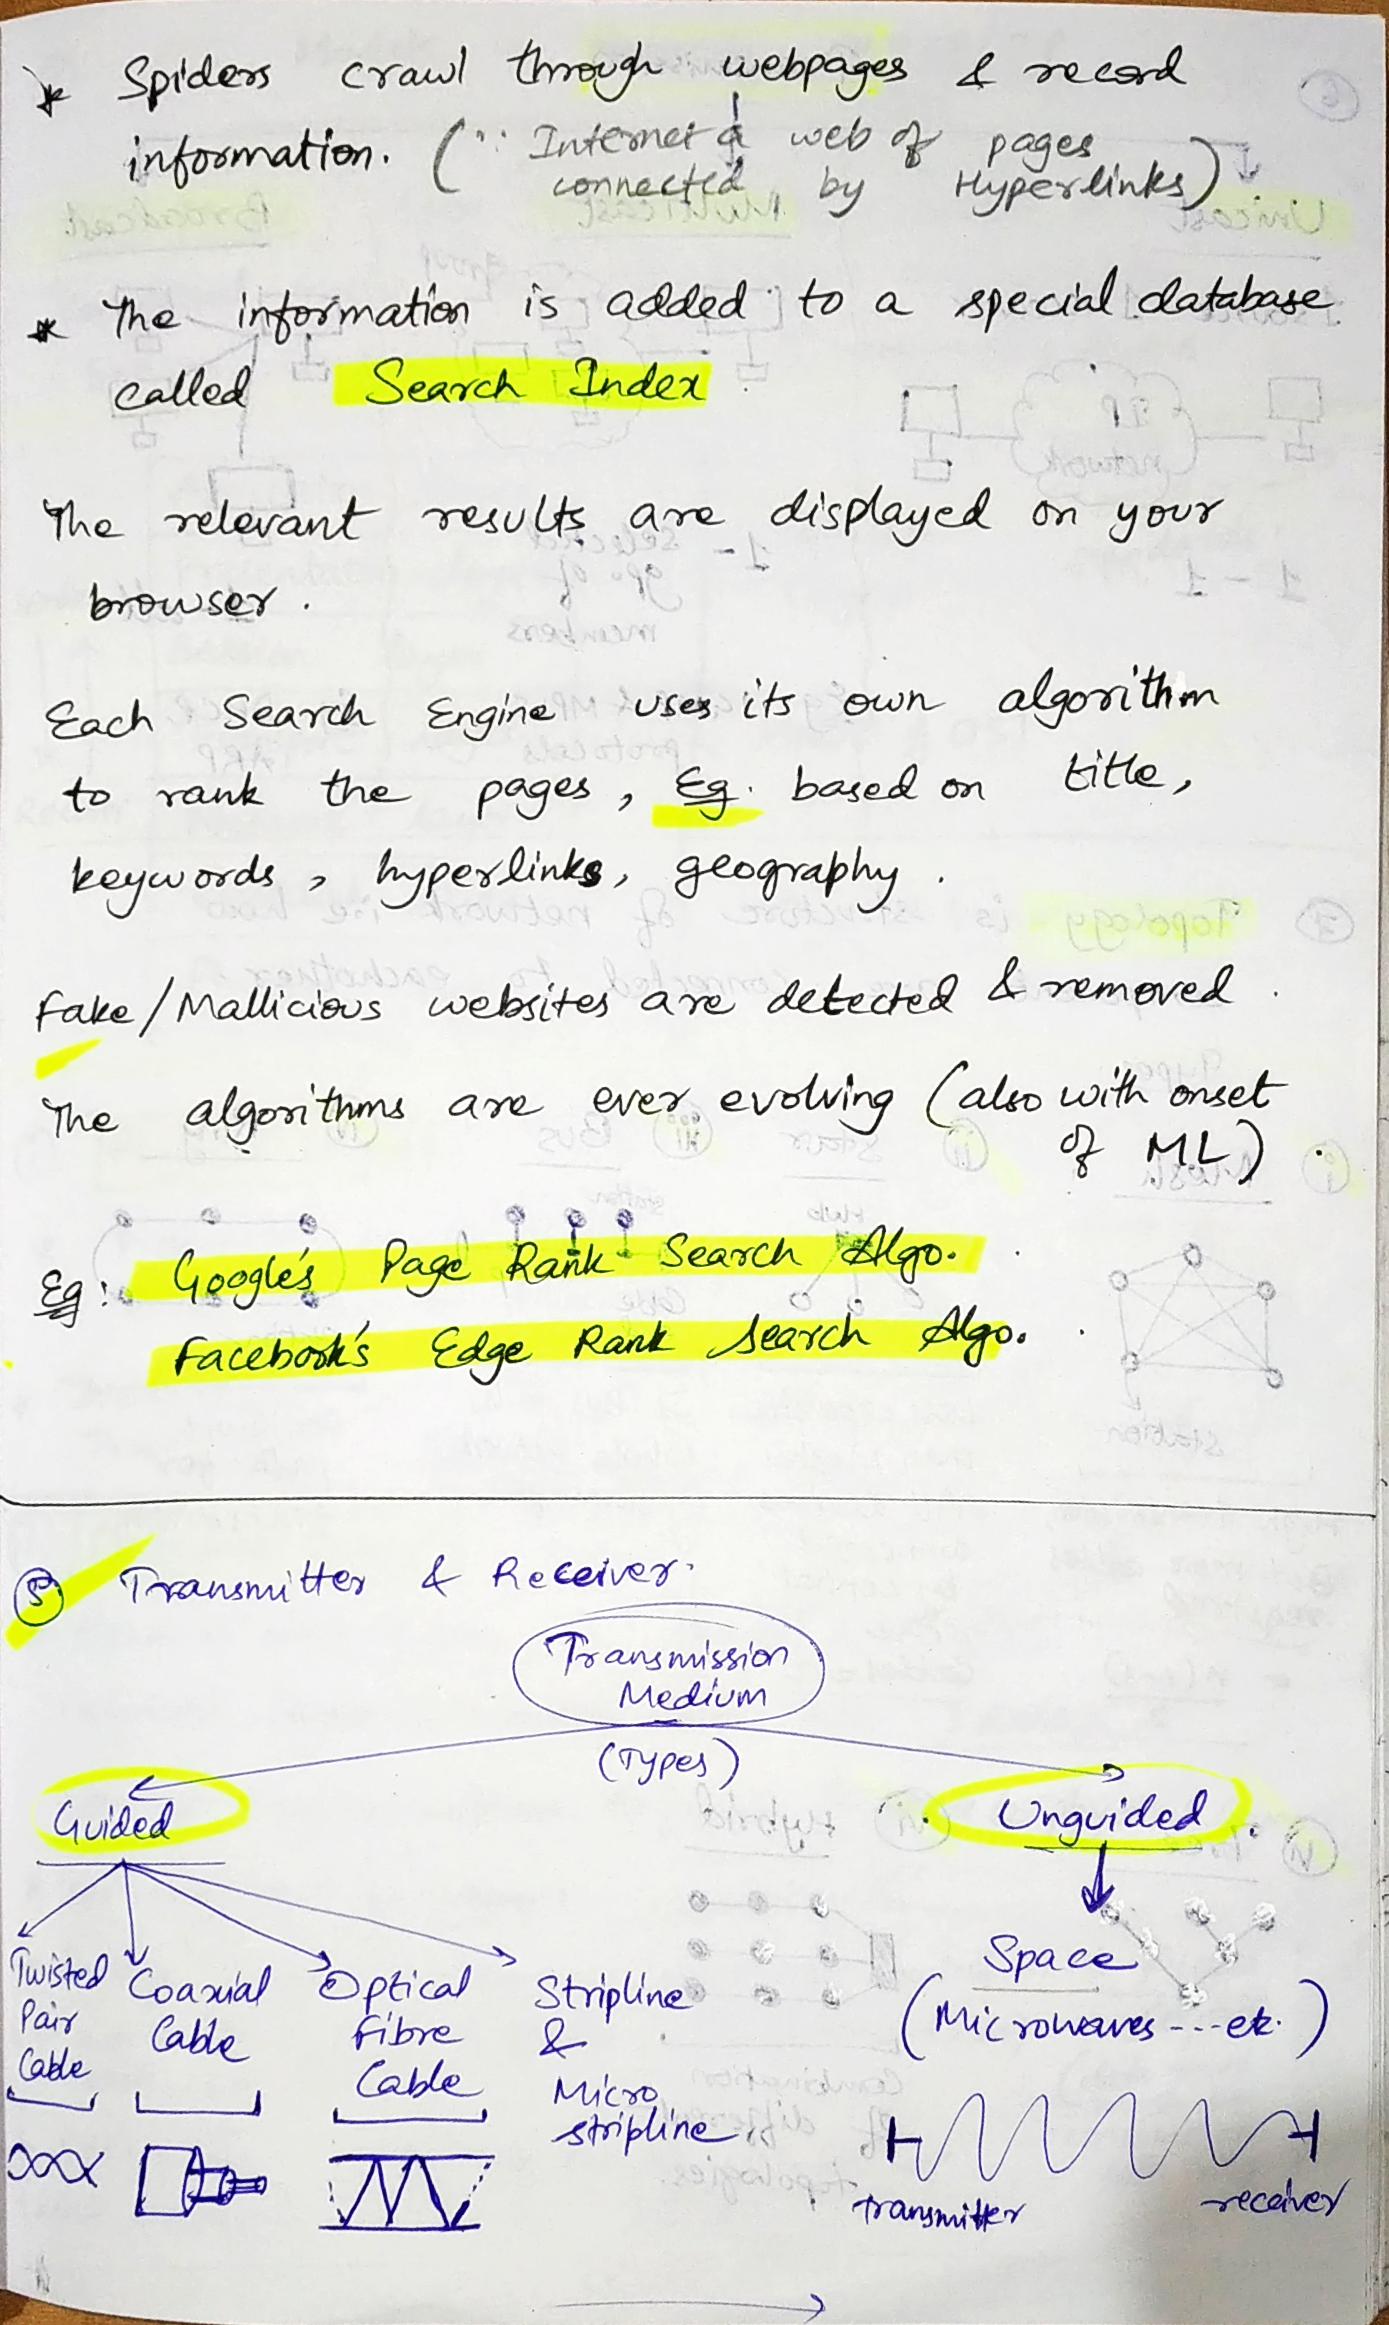 * Spiders crawl through webpages & record
information. (∵ Internet a web of pages
connected by Hyperlinks)
* The information is added to a special database
called Search Index.
The relevant results are displayed on your
browser.
Each Search Engine uses its own algorithm
to rank the pages, Eg. based on title,
keywords, hyperlinks, geography.
Fake/Mallicious websites are detected & removed.
The algorithms are ever evolving (also with onset
of ML).
Eg: Google's Page Rank Search Algo.
Facebook's Edge Rank Search Algo.
5 Transmitter & Receiver.
Transmission
Medium
(Types)
Guided
Unguided
Twisted
Pair
Cable
Coaxial
Cable
Optical
Fibre
Cable
Stripline
&
Micro
stripline
Space
(Microwaves ---etc.)
transmitter
receiver